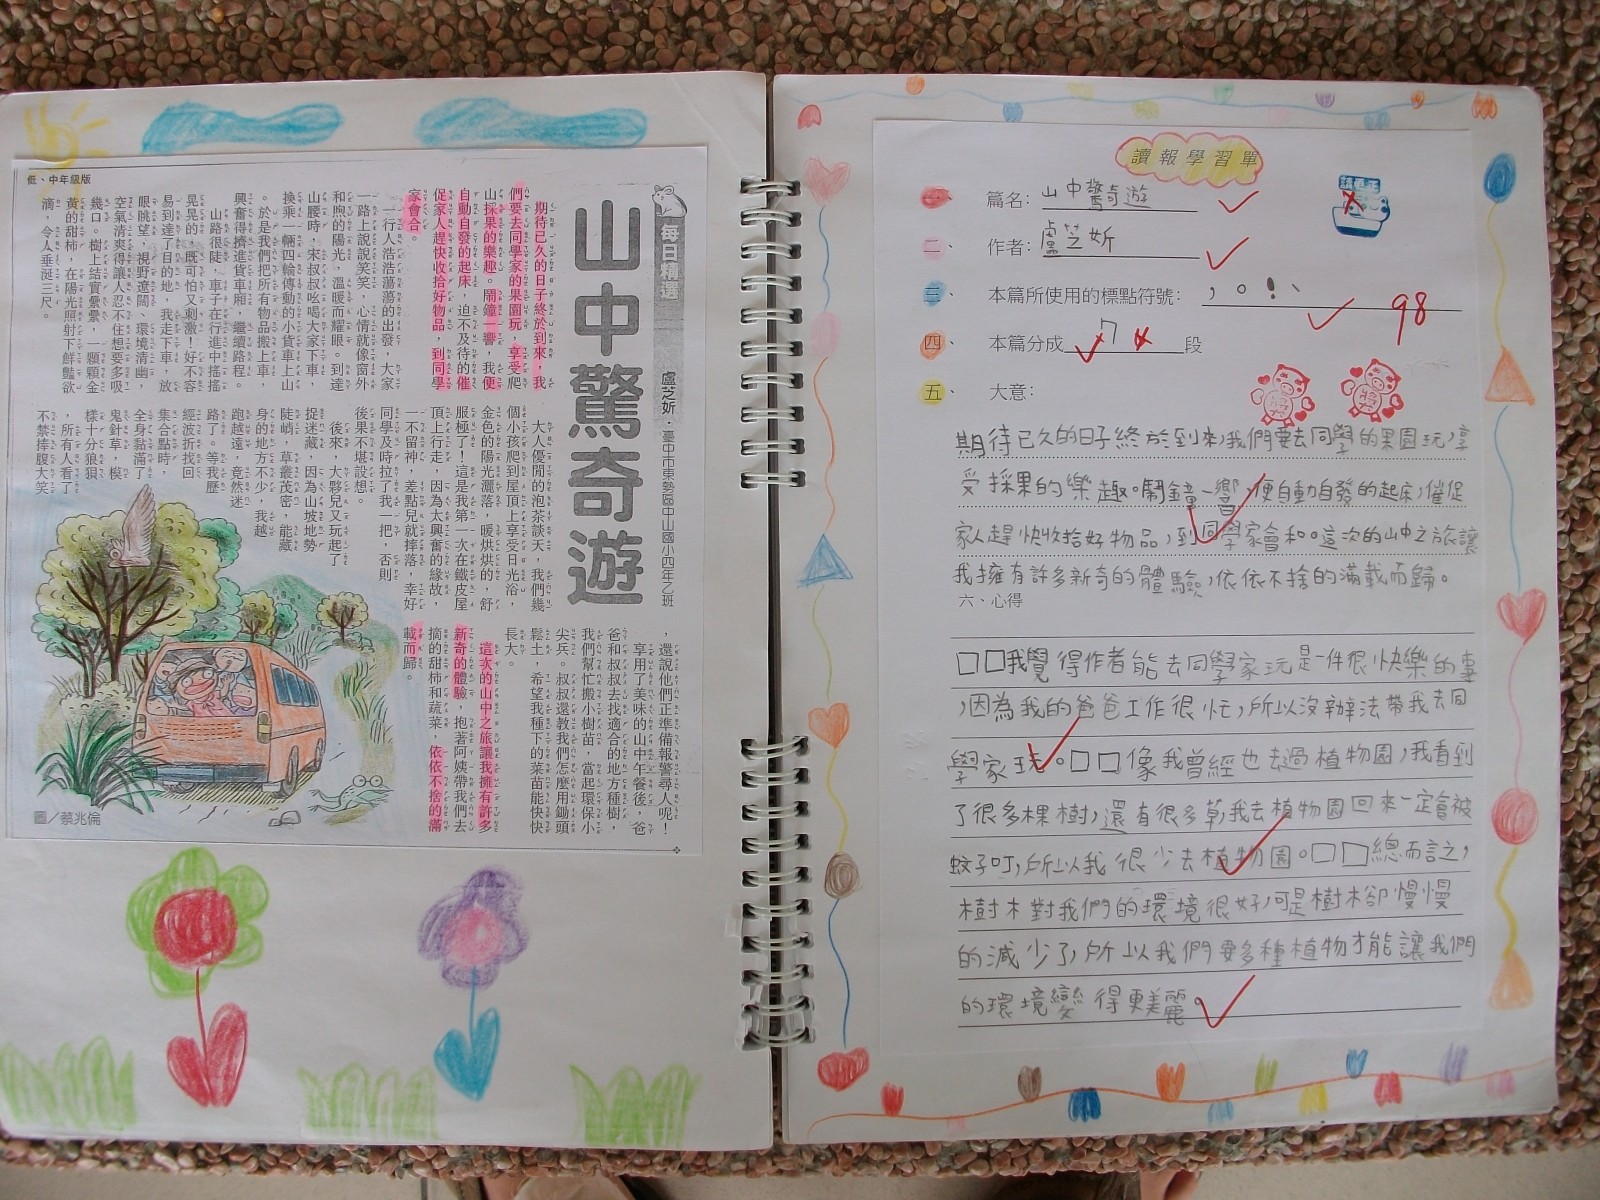 低、中年級版
每日精選
山中驚奇遊
盧芝妡．臺中市東勢區中山國小四年乙班
期待已久的日子終於到來，我
們要去同學家的果園玩，享受爬
山採果的樂趣。鬧鐘一響，我便
自動自發的起床，迫不及待的催
促家人趕快收拾好物品，到同學
家會合。
一行人浩浩蕩蕩的出發，大家
一路上說說笑笑，心情就像窗外
和煦的陽光，溫暖而耀眼。到達
山腰時，宋叔叔吆喝大家下車，
換乘一輛四輪傳動的小貨車上山
。於是我們把所有物品搬上車，
興奮得擠進貨車廂，繼續路程。
山路很陡，車子在行進中搖搖
晃晃的，既可怕又刺激！好不容
易到達了目的地，我走下車，放
眼眺望，視野遼闊、環境清幽，
空氣清爽得讓人忍不住想要多吸
幾口。樹上結實纍纍，一顆顆金
黃的甜柿，在陽光照射下鮮豔欲
滴，令人垂涎三尺。
大人優閒的泡茶談天，我們幾
個小孩爬到屋頂上享受日光浴，
金色的陽光灑落，暖烘烘的，舒
服極了！這是我第一次在鐵皮屋
頂上行走，因為太興奮的緣故，
一不留神，差點兒就摔落，幸好
同學及時拉了我一把，否則
後果不堪設想。
後來，大夥兒又玩起了
捉迷藏，因為山坡地勢
陡峭，草叢茂密，能藏
身的地方不少，我越
跑越遠，竟然迷
路了。等我歷
經波折找回
集合點時，
全身黏滿了
鬼針草，模
樣十分狼狽
，所有人看了
不禁捧腹大笑
，還說他們正準備報警尋人呢！
享用了美味的山中午餐後，爸
爸和叔叔去找適合的地方種樹，
我們幫忙搬小樹苗，當起環保小
尖兵。叔叔還教我們怎麼用鋤頭
鬆土，希望我種下的菜苗能快快
長大。
這次的山中之旅讓我擁有許多
新奇的體驗，抱著阿姨帶我們去
摘的甜柿和蔬菜，依依不捨的滿
載而歸。
圖／蔡兆倫
讀報學習單
一、 篇名：山中驚奇遊
二、 作者：盧芝妡
三、 本篇所使用的標點符號：，。！、
98
四、 本篇分成7段
五、 大意：
期待已久的日子終於到來，我們要去同學的果園玩，享
受採果的樂趣。鬧鐘一響，便自動自發的起床，催促
家人趕快收拾好物品，到同學家會和。這次的山中之旅讓
我擁有許多新奇的體驗，依依不捨的滿載而歸。
六、心得
□□我覺得作者能去同學家玩是一件很快樂的事
，因為我的爸爸工作很忙，所以沒辦法帶我去同
學家玩。□□像我曾經也去過植物園，我看到
了很多棵樹，還有很多草，我去植物園回來一定會被
蚊子叮，所以我很少去植物園。□□總而言之，
樹木對我們的環境很好，可是樹木卻慢慢
的減少了，所以我們要多種植物才能讓我們
的環境變得更美麗。